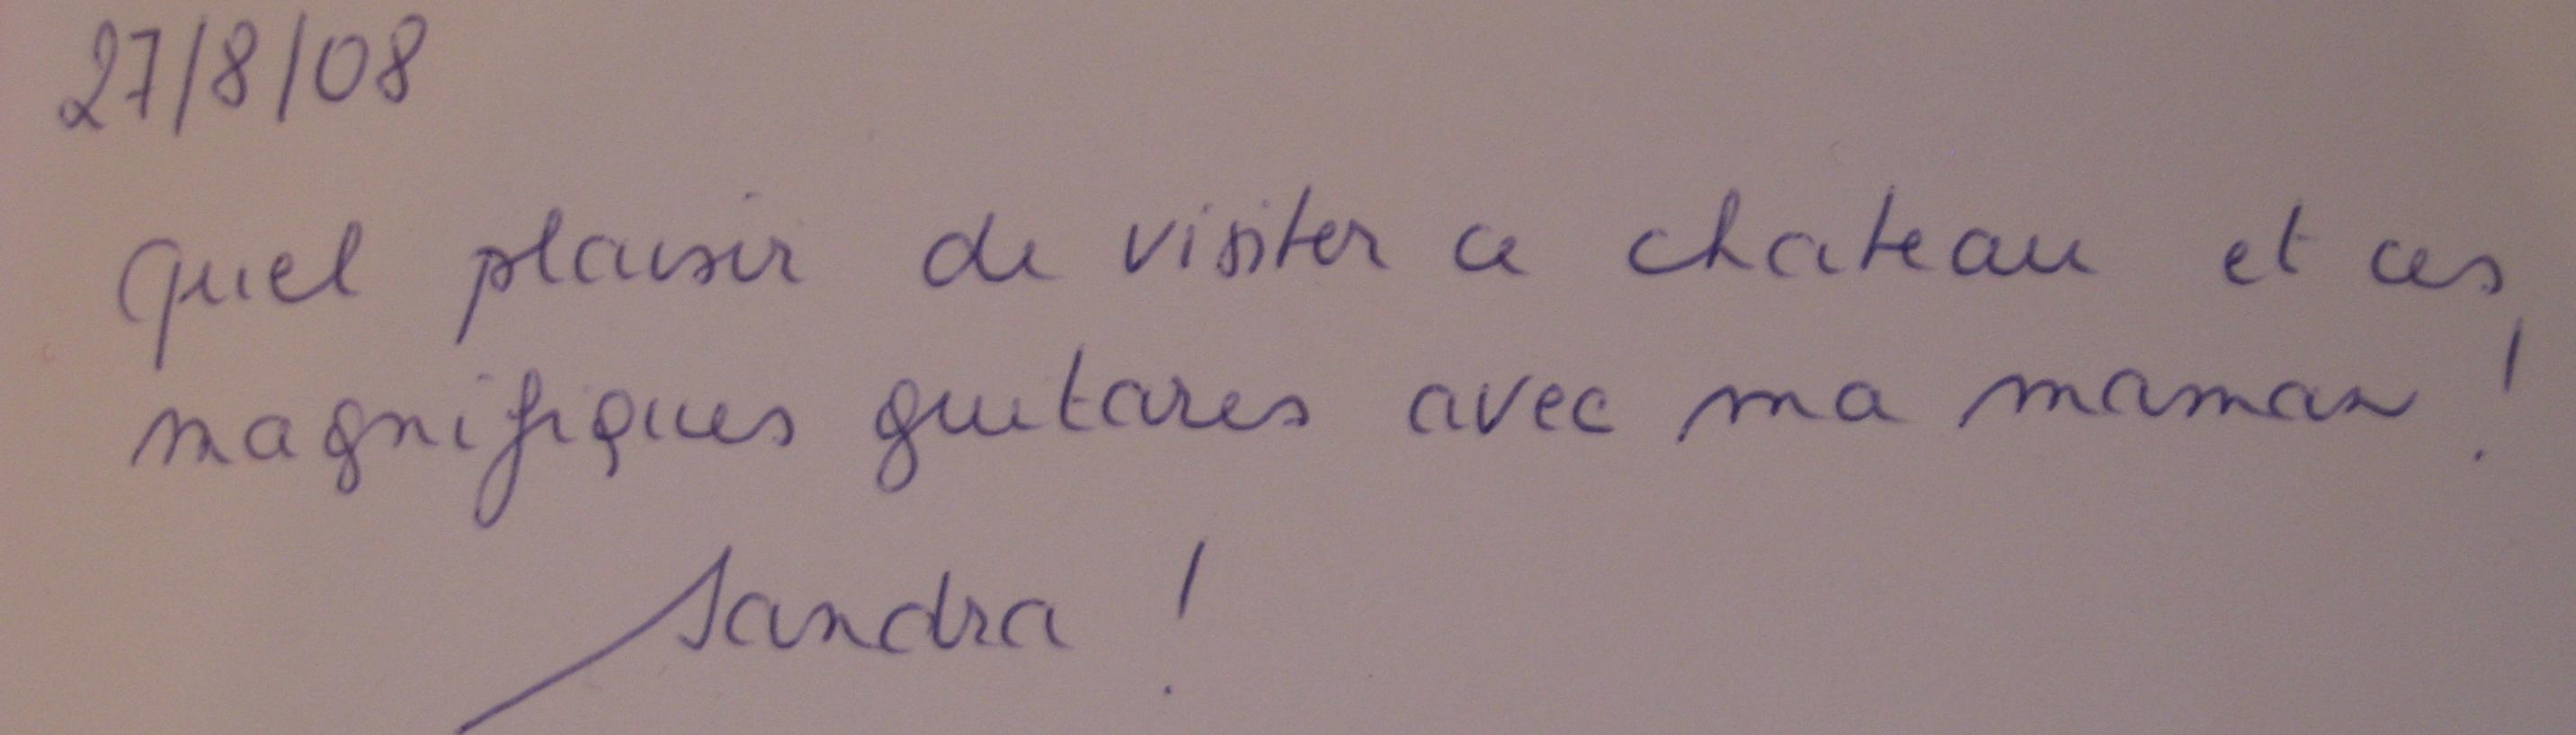 27/8/08
Quel plaisir de visiter ce chateau et ces
magnifiques guitares avec ma maman !
Sandra !